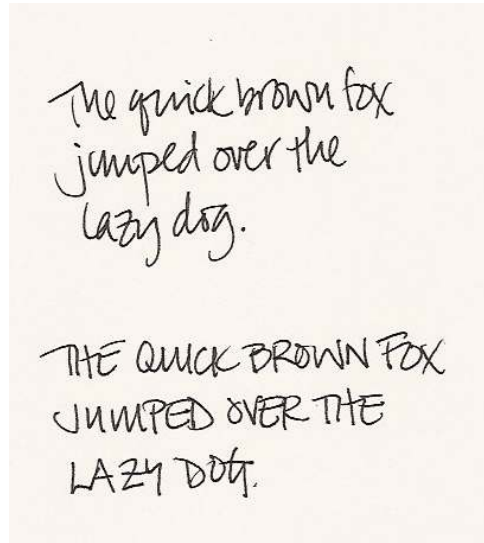 The quick brown fox
jumped over the
lazy dog.
THE QUICK BROWN FOX
JUMPED OVER THE
LAZY DOG.